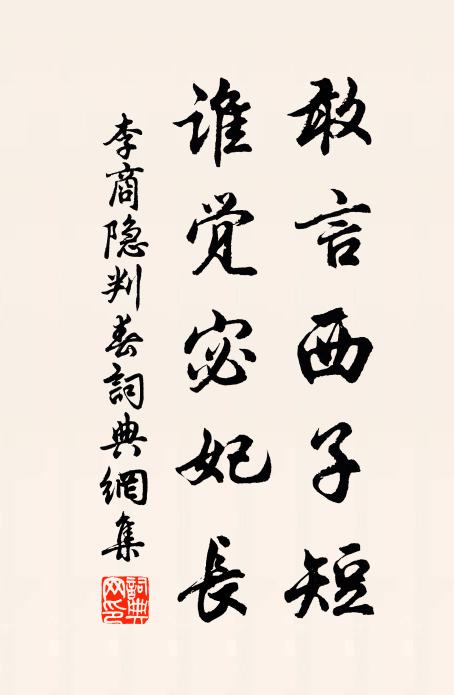 敢言西子短
谁觉宓妃長
李商隐判春詞典網集
詞典网印